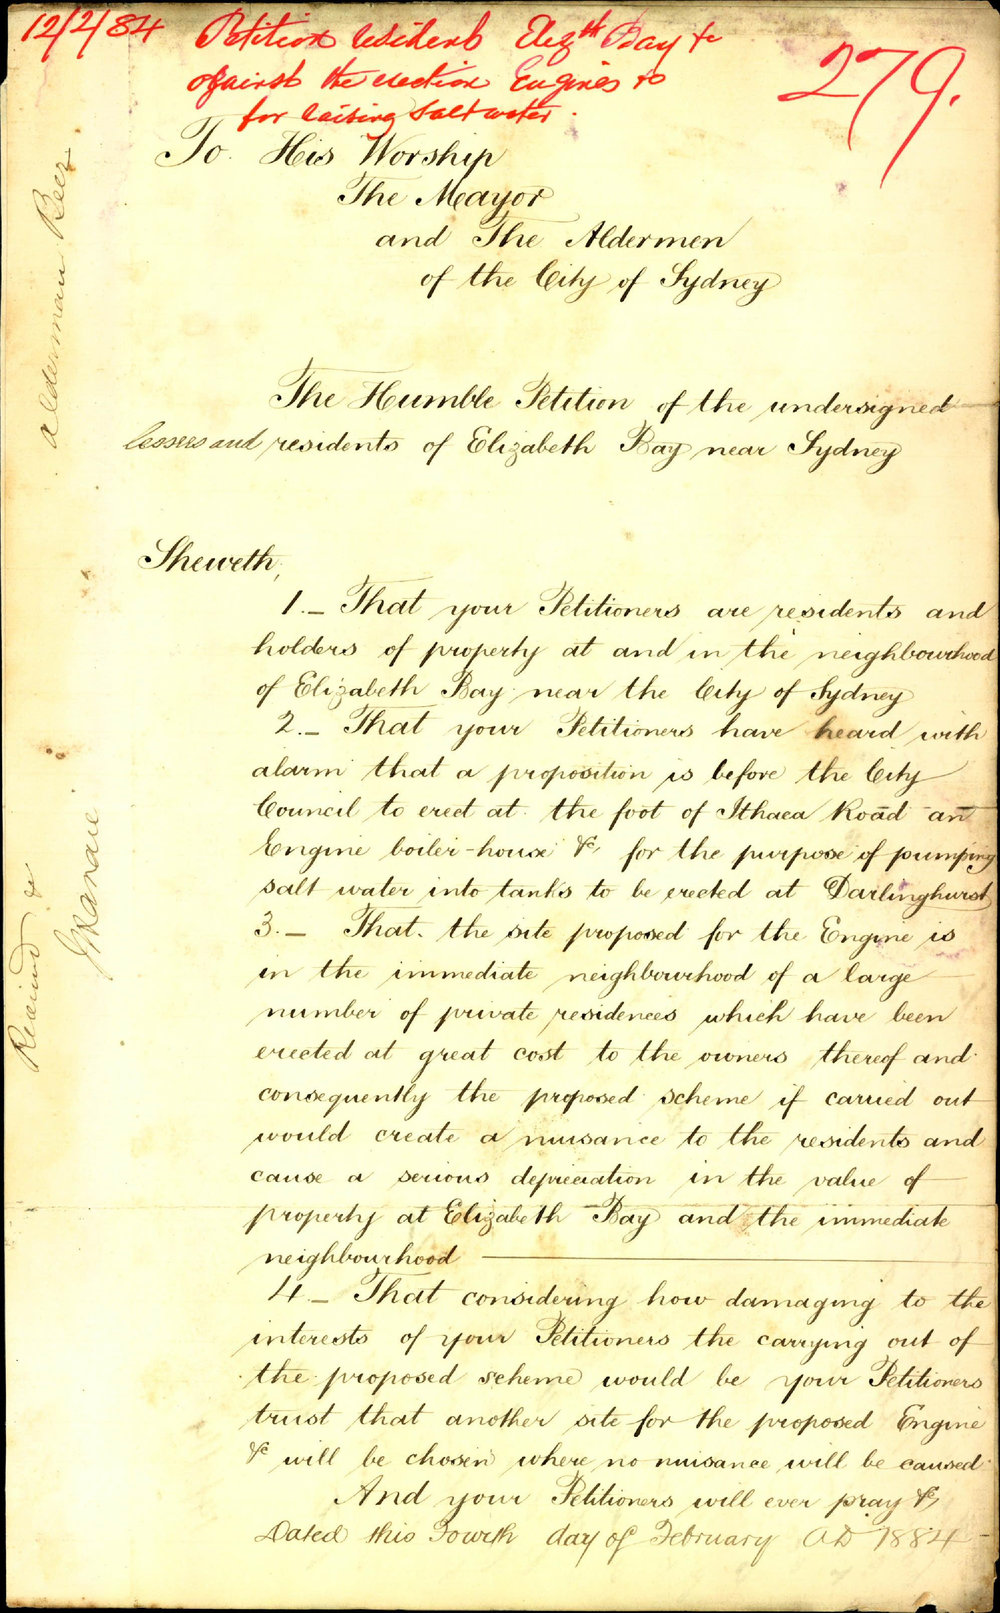 12/2/84 Petition residents Eliz.th Bay &c
against the erection Engines &c
for raising Salt water.
279.
To. His Worship
The Mayor
and The Aldermen
of the City of Sydney
The Humble Petition of the undersigned
lessees and residents of Elizabeth Bay near Sydney
Sheweth,
1. _ That your Petitioners are residents and
holders of property at and in the neighbourhood
of Elizabeth Bay near the City of Sydney
2. _ That your Petitioners have heard with
alarm that a proposition is before the City
Council to erect at the foot of Ithaca Road an
Engine boiler-house &c, for the purpose of pumping
salt water into tanks to be erected at Darlinghurst
3. _ That the site proposed for the Engine is
in the immediate neighbourhood of a large
number of private residences which have been
erected at great cost to the owners thereof and
consequently the proposed scheme if carried out
would create a nuisance to the residents and
cause a serious depreciation in the value of
property at Elizabeth Bay and the immediate
neighbourhood
4 _ That considering how damaging to the
interests of your Petitioners the carrying out of
the proposed scheme would be your Petitioners
trust that another site for the proposed Engine
&c will be chosen where no nuisance will be caused
And your Petitioners will ever pray &c,
Dated this Fourth day of February AD 1884
Alderman Beer
Received &